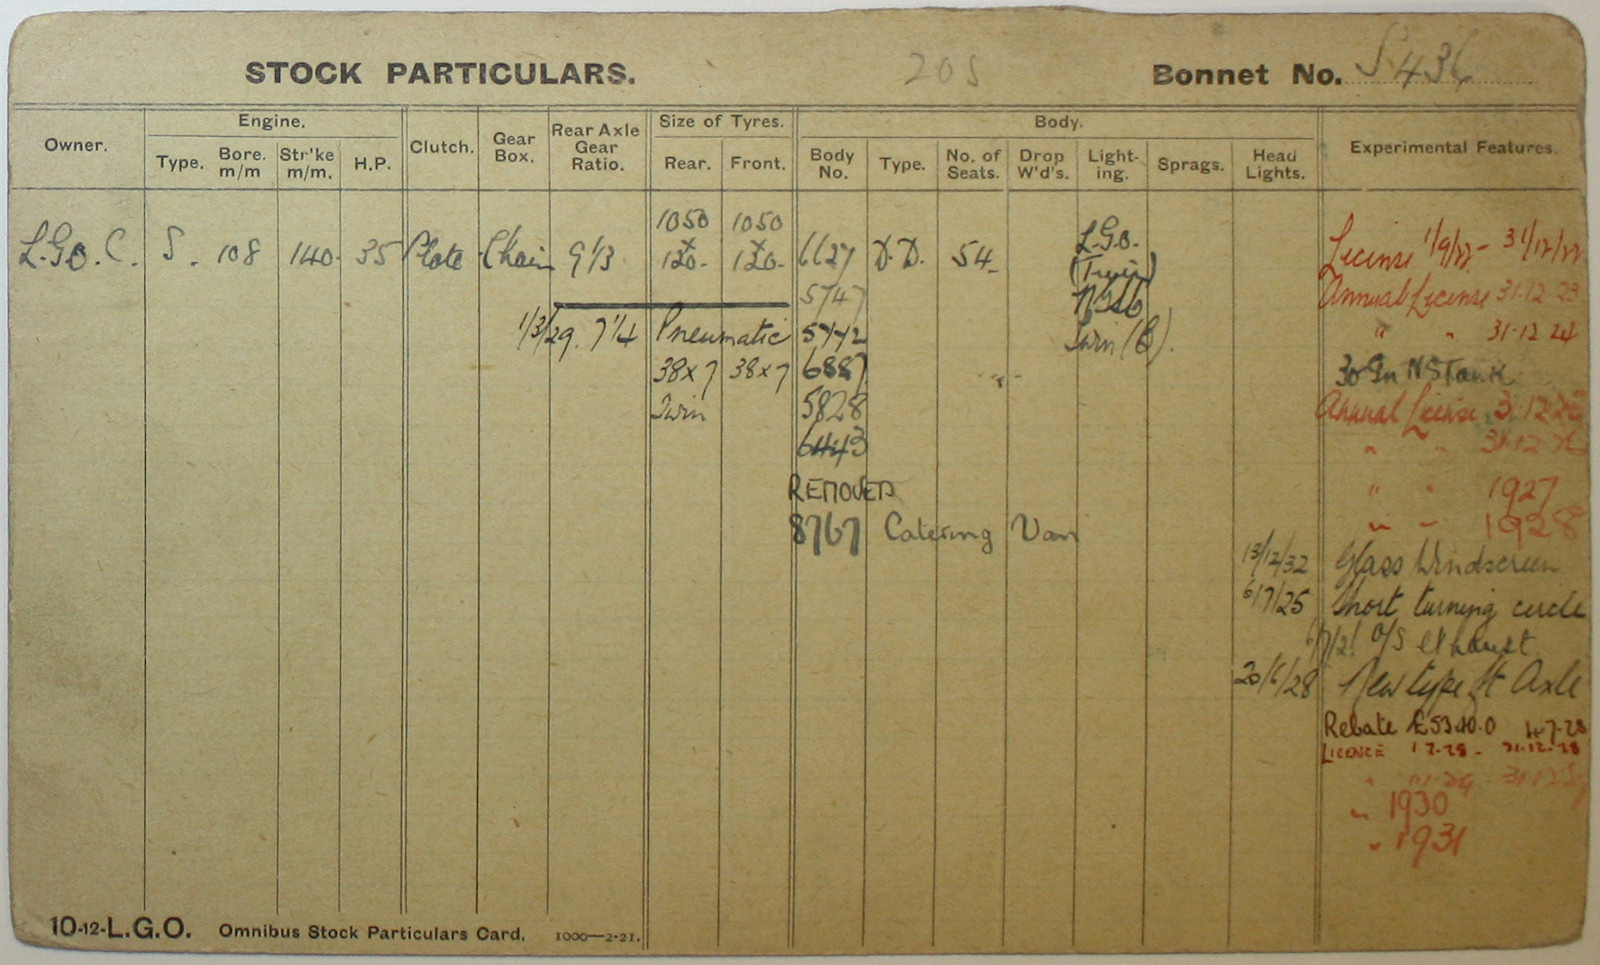 STOCK PARTICULARS. 20S Bonnet No. S 436
Owner. Engine. Clutch. Gear Box. Rear Axle Gear Ratio. Size of Tyres. Body. Experimental Features.
Type. Bore. m/m Str'ke m/m. H.P. Rear. Front. Body No. Type. No. of Seats. Drop W'd's. Light-ing. Sprags. Head Lights.
L.G.O.C. S. 108 140 35 Plate Chain 9/13 1050 x 120. 1050 x 120. 6627 D.D. 54 L.G.O. (Twin) License 1/9/22 - 31/12/22
5747 Annual License 31.12 23
1/3/29. 7/4 Pneumatic 5772 Twin (B). " " 31.12 24
38x7 38x7 6887 30 Gn NS Tank
Twin 5828 Annual License 31.12 25
6443 " " 31.12 26
REMOVED " " 1927
8767 Catering Van " " 1928
13/12/32 Glass Windscreen
6/7/25 Short turning circle
O/S exhaust
20/6/28 New type ft Axle
Rebate £53 40.0 4.7.28
LICENCE 1 7.28 - 31.12.28
" 1930
" 1931
10-12-L.G.O. Omnibus Stock Particulars Card. 1000—2-21.